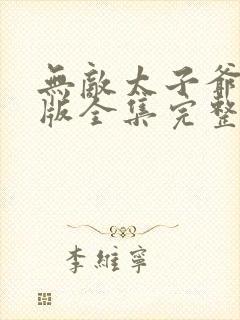 無敵太子爺
版全集完整
李維寧